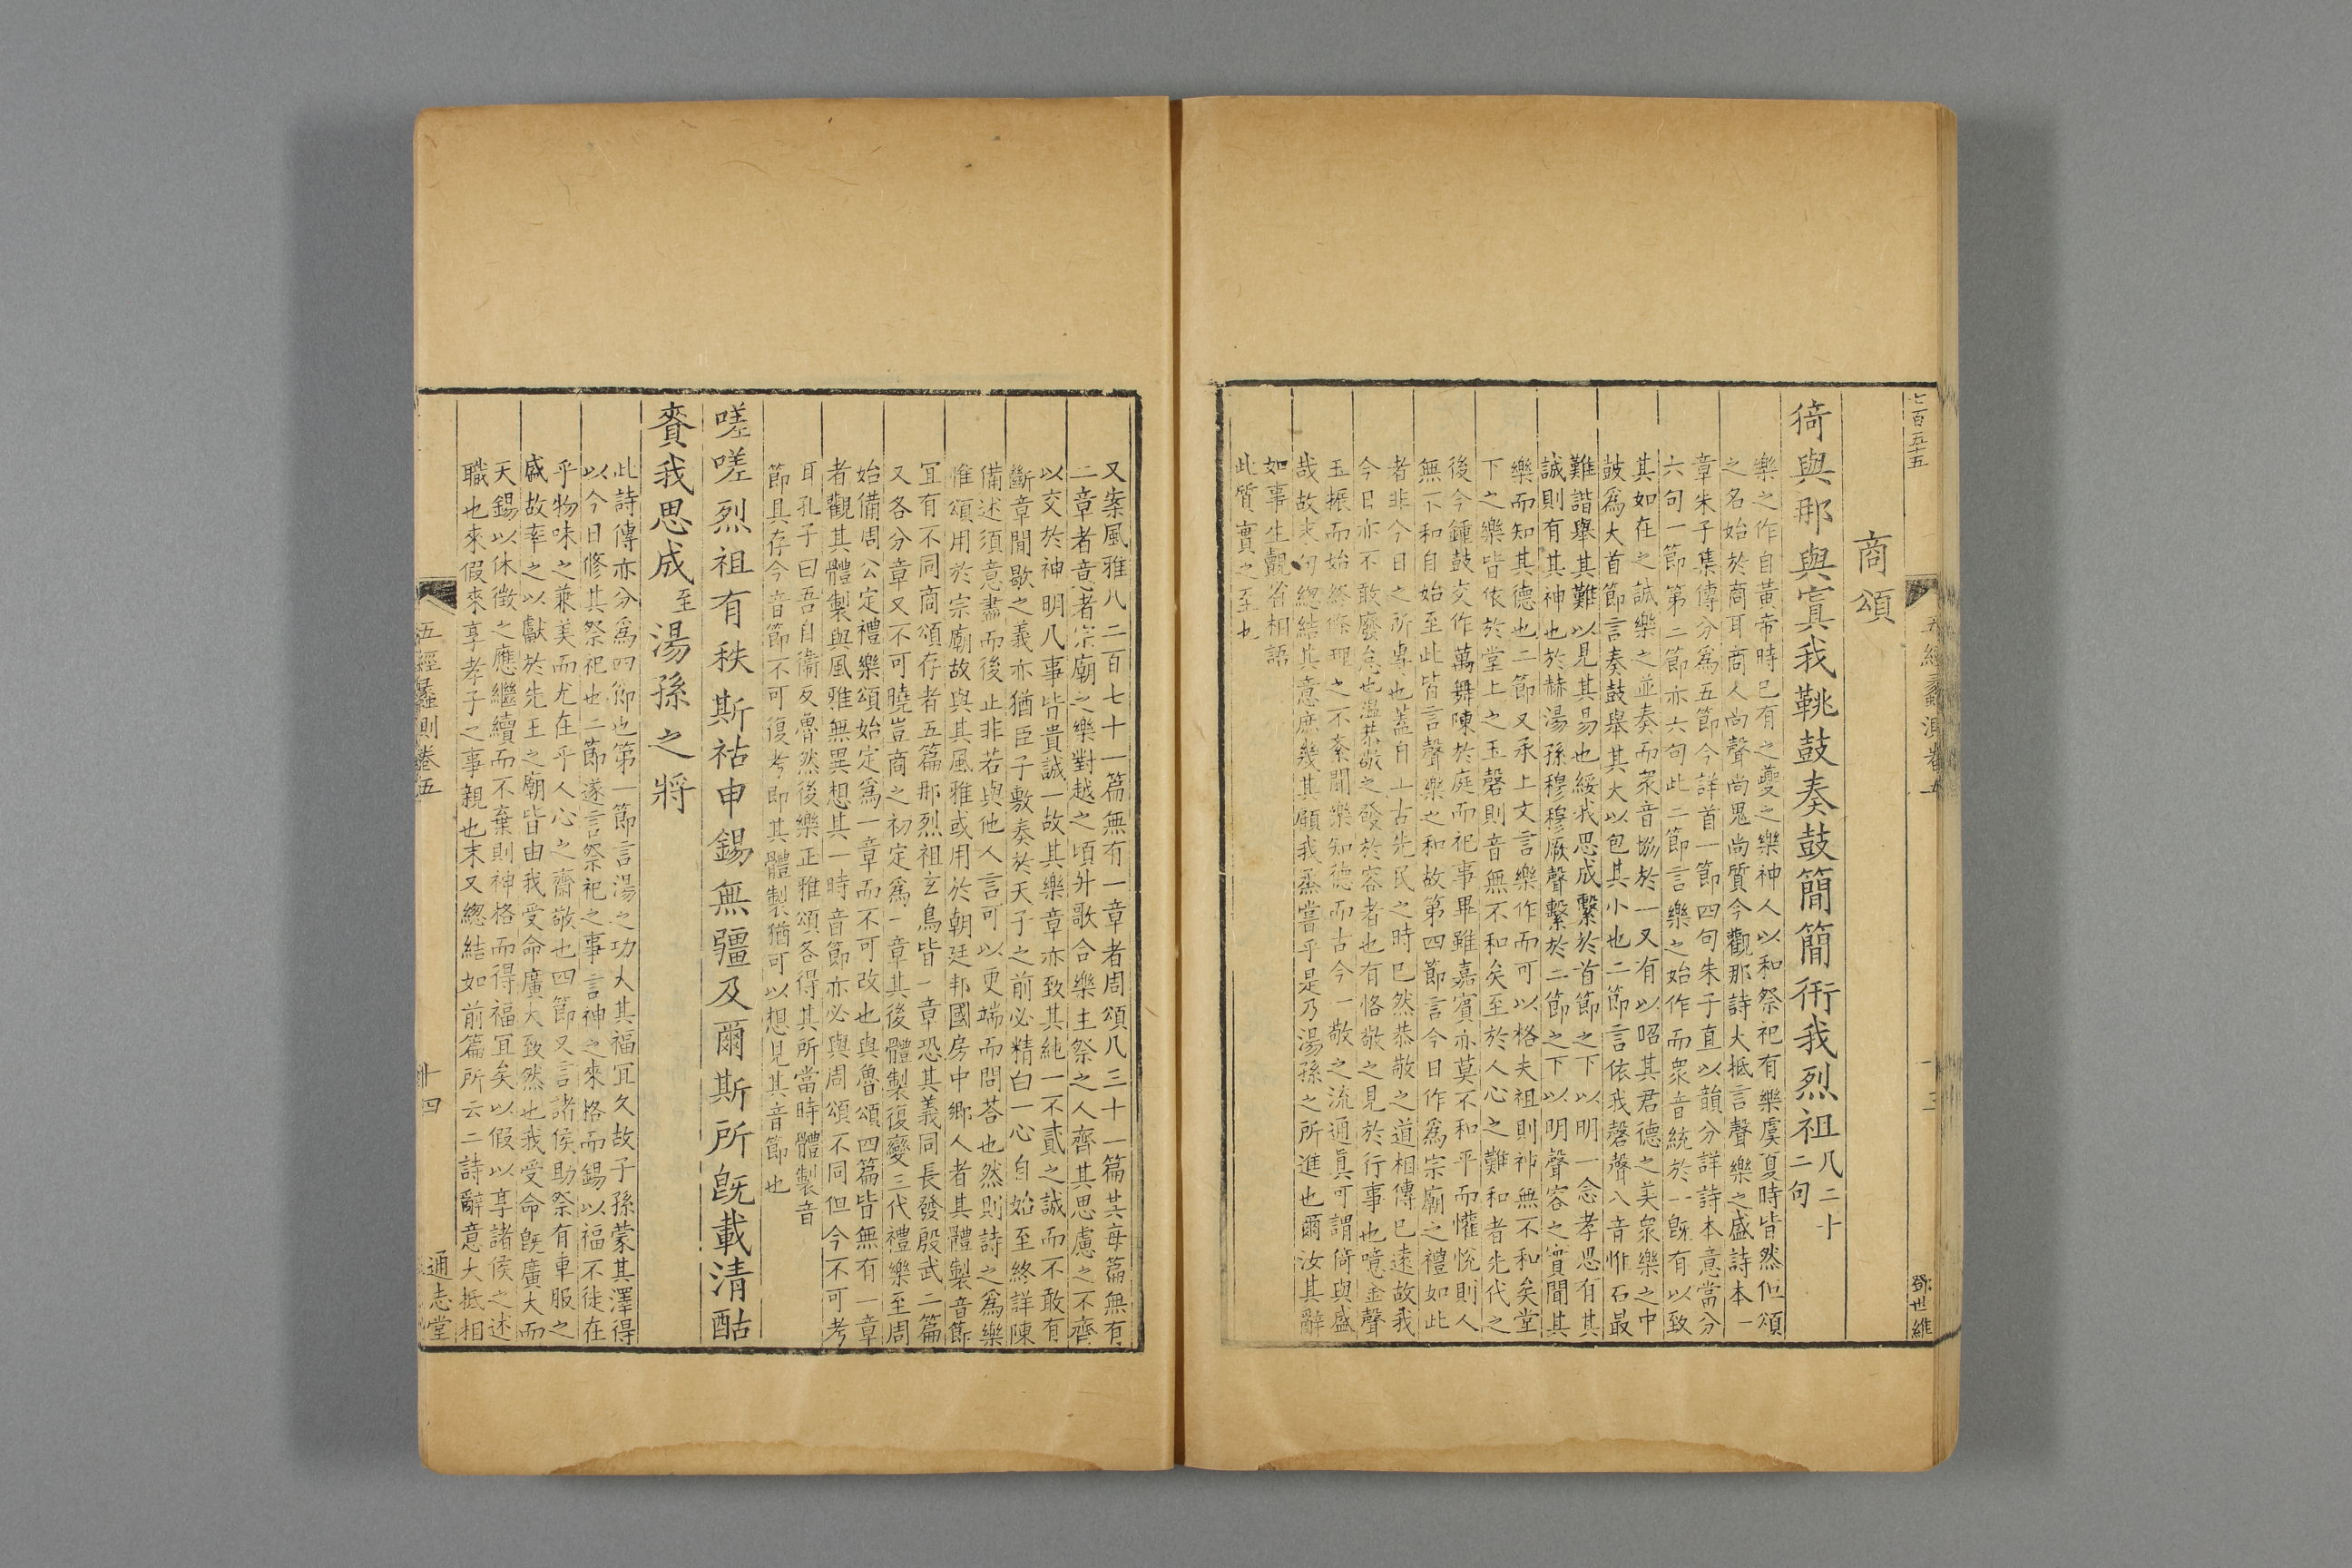 七百五十五
五經蠡測卷五
十三
鄧世維
商頌
猗與那與寘我鞉鼓奏鼓簡簡衎我烈祖八二十二句
樂之作自黃帝時已有之夔之樂神人以和祭祀有樂虞夏時皆然但頌
之名始於商耳商人尚聲尚鬼尚質今觀那詩大抵言聲樂之盛詩本一
章朱子集傳分爲五節今詳首一節四句朱子直以韻分詳詩本意當分
六句一節第二節亦六句此二節言樂之始作而衆音統於一旣有以致
其如在之誠樂之並奏而衆音恊於一又有以昭其君德之美衆樂之中
鼓爲大首節言奏鼓舉其大以包其小也二節言依我磬聲八音惟石最
難諧舉其難以見其易也綏我思成繫於首節之下以明一念孝思有其
誠則有其神也於赫湯孫穆穆厥聲繫於二節之下以明聲容之實聞其
樂而知其德也二節又承上文言樂作而可以格夫祖則神無不和矣堂
下之樂皆依於堂上之玉磬則音無不和矣至於人心之難和者先代之
後今鍾鼓交作萬舞陳於庭而祀事畢雖嘉賓亦莫不和平而懽悅則人
無不和自始至此皆言聲樂之和故第四節言今日作爲宗廟之禮如此
者非今日之所專也蓋自上古先民之時已然恭敬之道相傳已遠故我
今日亦不敢廢怠也溫恭敬之發於容者也有恪敬之見於行事也噫金聲
玉振而始終條理之不紊聞樂知德而古今一敬之流通眞可謂猗與盛
哉故末句總結其意庶幾其顧我烝嘗乎是乃湯孫之所進也爾汝其辭
如事生觀若相語
此質實之至也
又案風雅八二百七十一篇無有一章者周頌八三十一篇其每篇無有
二章者意者宗廟之樂對越之頃升歌合樂主祭之人齊其思慮之不齊
以交於神明八事皆貴誠一故其樂章亦致其純一不貳之誠而不敢有
斷章間歇之義亦猶臣子敷奏於天子之前必精白一心自始至終詳陳
備述須意盡而後止非若與他人言可以更端而問荅也然則詩之爲樂
惟頌用於宗廟故與其風雅或用於朝廷邦國房中鄉人者其體製音節
冝有不同商頌存者五篇那烈祖玄鳥皆一章恐其義同長發殷武二篇
又各分章又不可曉豈商之初定爲一章其後體製復變三代禮樂至周
始備周公定禮樂頌始定爲一章而不可改也與魯頌四篇皆無有一章
者觀其體製與風雅無異想其一時音節亦必與周頌不同但今不可考
耳孔子曰吾自衞反魯然後樂正雅頌各得其所當時體製音
節具存今音節不可復考即其體製猶可以想見其音節也
嗟嗟烈祖有秩斯祜申錫無疆及爾斯所旣載清酤
賚我思成至湯孫之將
此詩傳亦分爲四節也第一節言湯之功大其福冝久故子孫蒙其澤得
以今日修其祭祀也二節遂言祭祀之事言神之來格而錫以福不徒在
乎物味之兼美而尤在乎人心之齋敬也四節又言諸侯助祭有車服之
盛故率之以獻於先王之廟皆由我受命廣大致然也我受命旣廣大而
天錫以休徵之應繼續而不棄則神格而得福冝矣以假以享諸侯之述
職也來假來享孝子之事親也末又總結如前篇所云二詩辭意大抵相
五經蠡測卷五
十四
通志堂